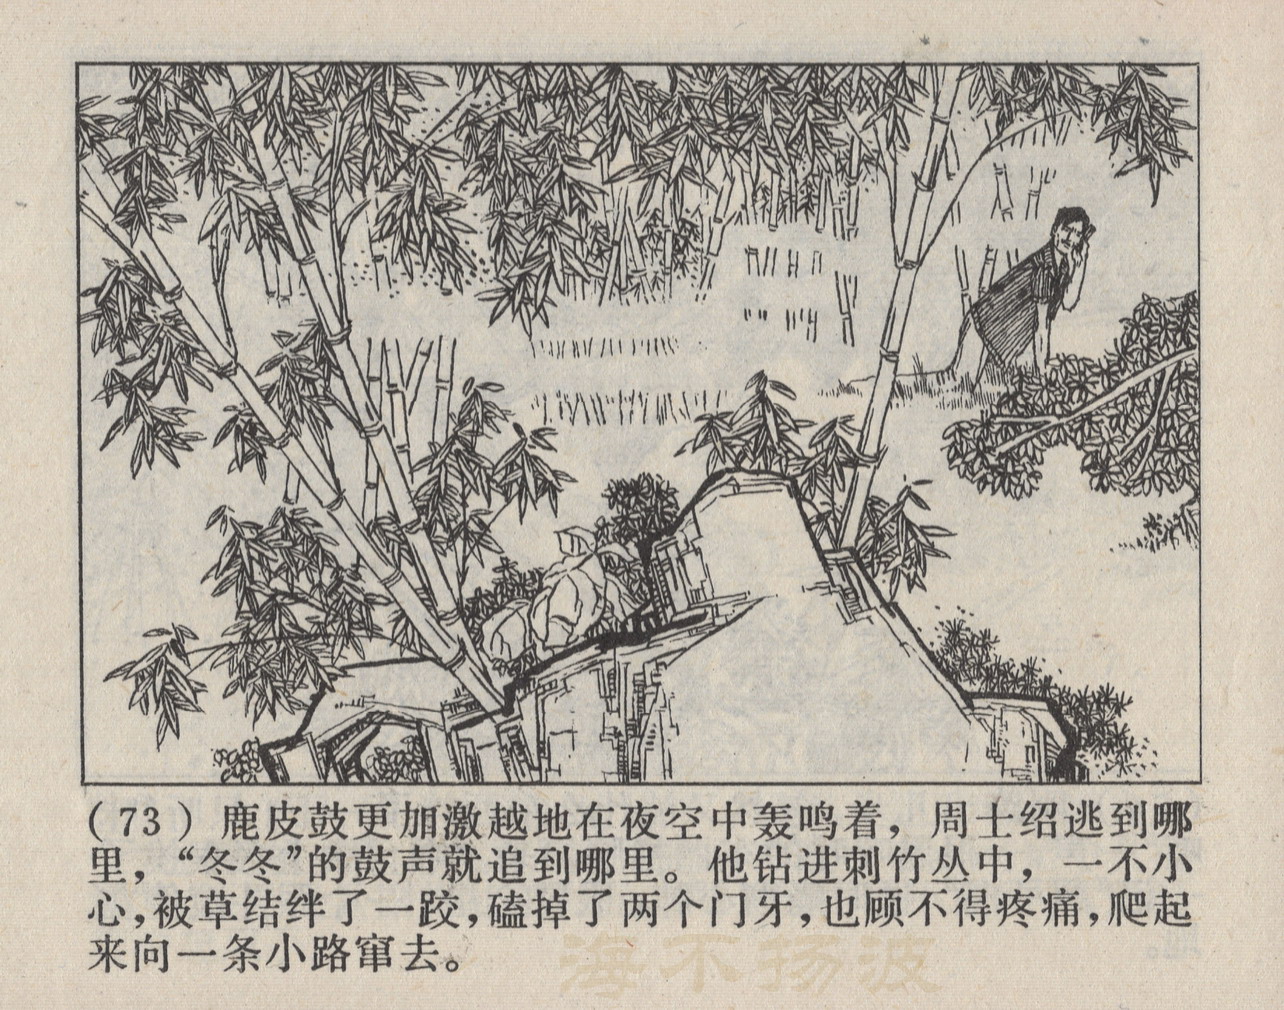 (73) 鹿皮鼓更加激越地在夜空中轰鸣着，周士绍逃到哪
里，“冬冬”的鼓声就追到哪里。他钻进刺竹丛中，一不小
心，被草结绊了一跤，磕掉了两个门牙，也顾不得疼痛，爬起
来向一条小路窜去。
海不扬波